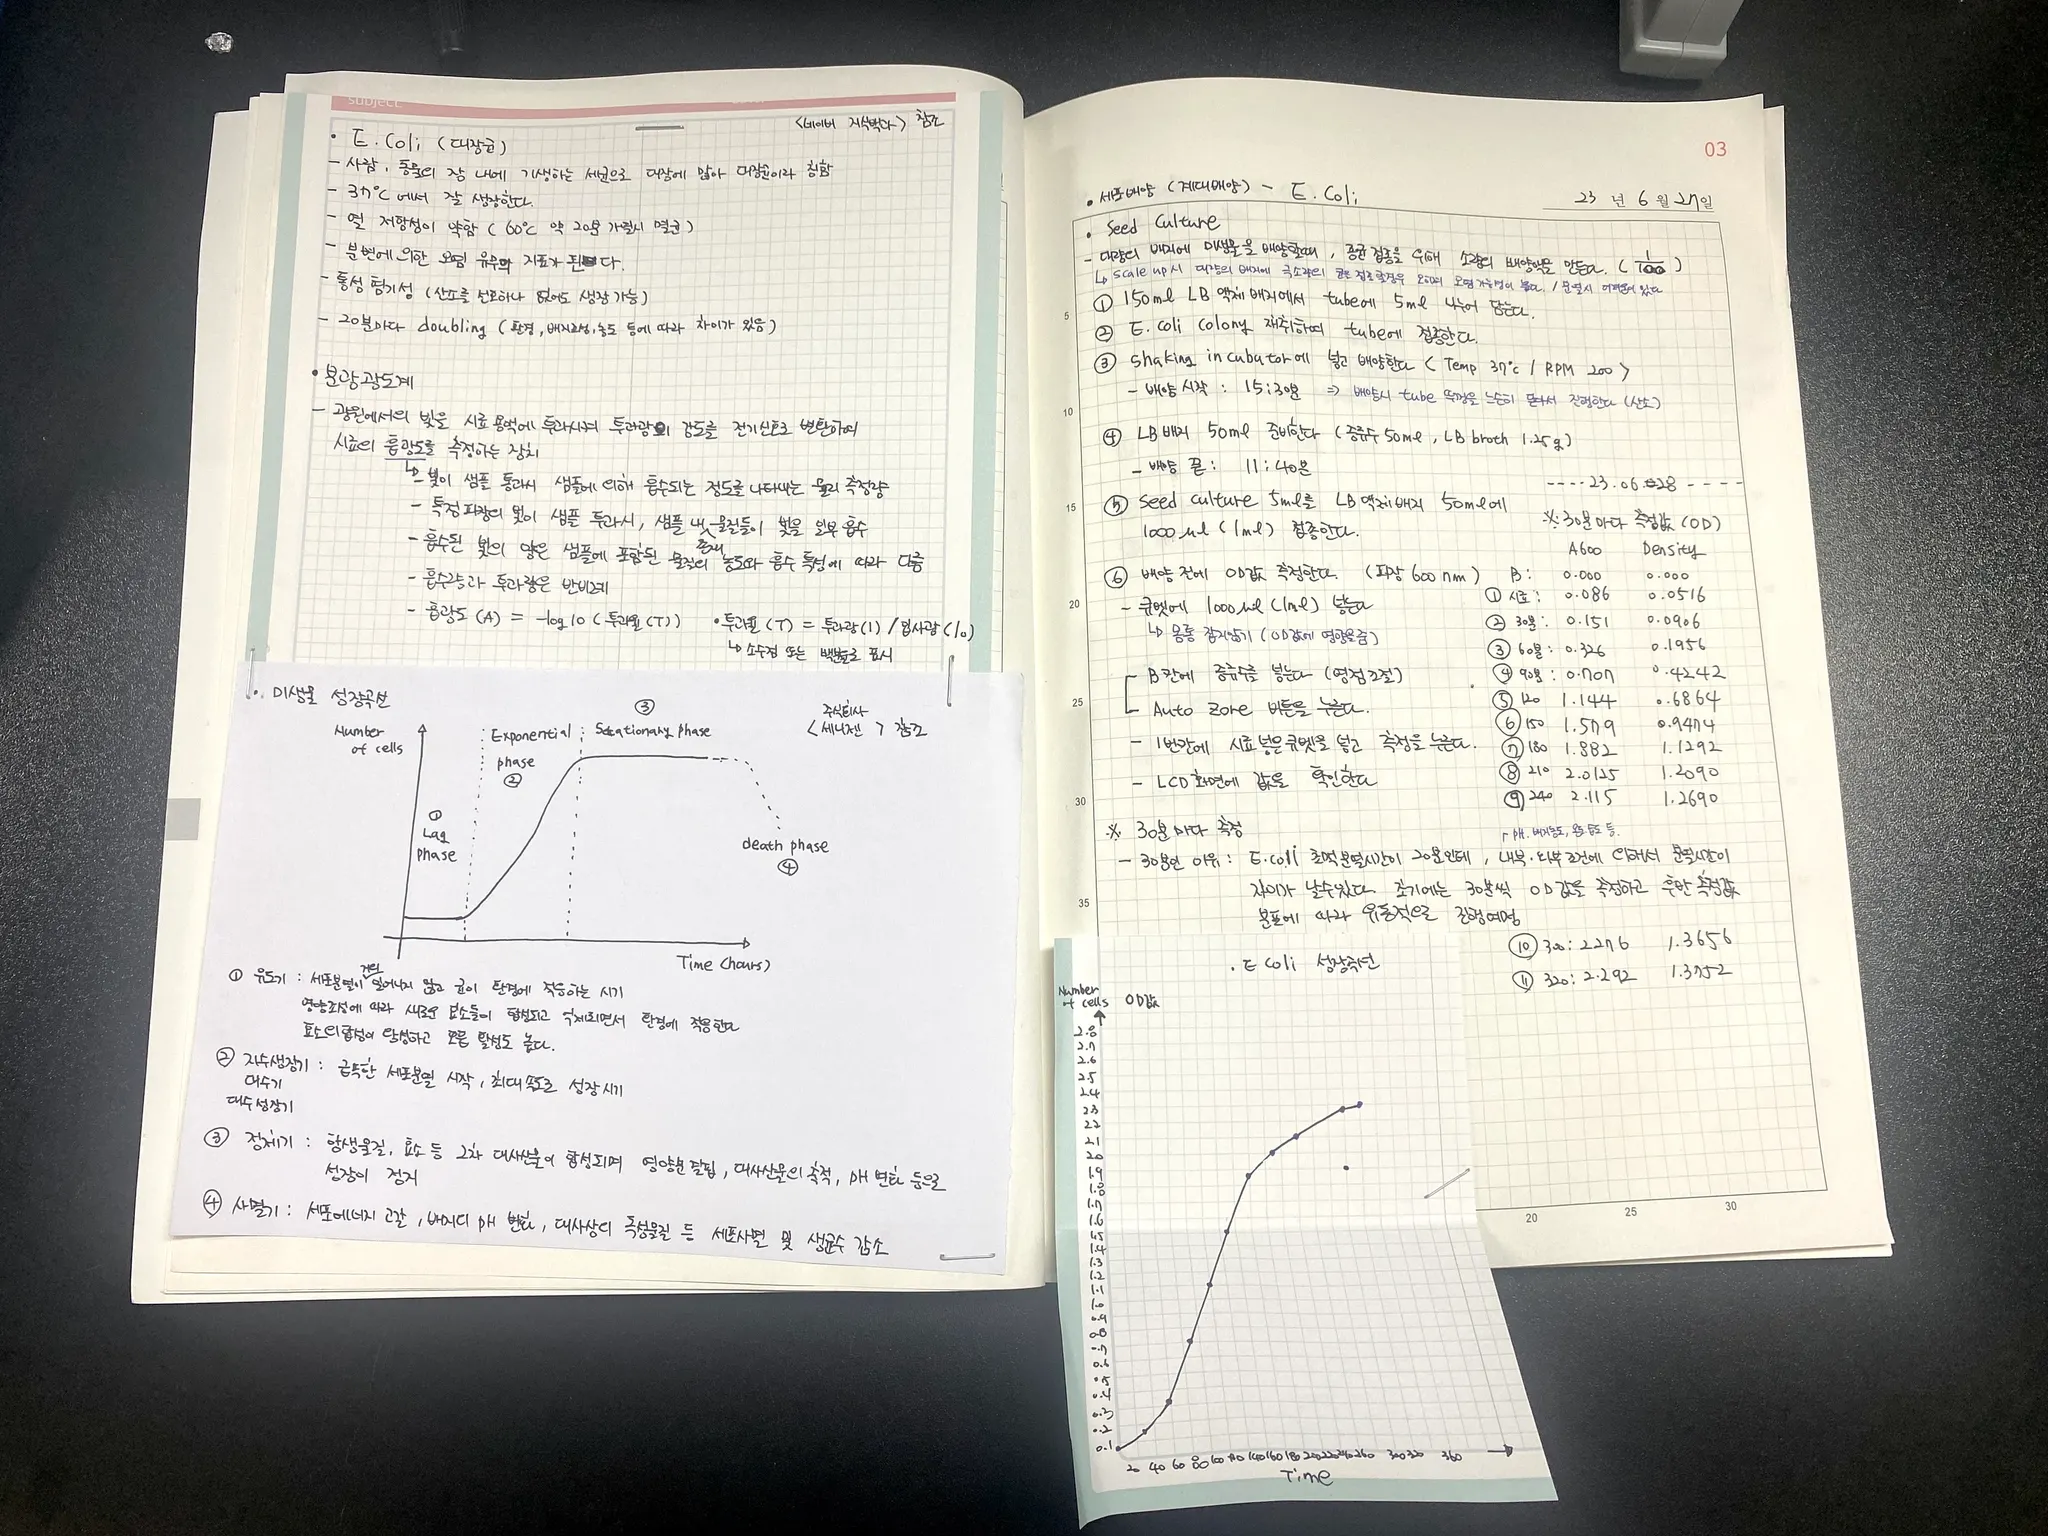 subject.
<네이버 지식백과> 참조
• E. Coli (대장균)
- 사람, 동물의 장 내에 기생하는 세균으로 대장에 많아 대장균이라 칭함
- 37℃에서 잘 생장한다.
- 열 저항성이 약함 (60℃ 약 20분 가열시 멸균)
- 분변에 의한 오염 유무의 지표가 된다.
- 통성 혐기성 (산소를 선호하나 없어도 생장 가능)
- 20분마다 doubling (환경, 배지조성, 농도 등에 따라 차이가 있음)
• 분광광도계
- 광원에서의 빛을 시료 용액에 투과시켜 투과광의 강도를 전기신호로 변환하여
시료의 흡광도를 측정하는 장치
↳ - 빛이 샘플 통과시 샘플에 의해 흡수되는 정도를 나타내는 물리 측정량
- 특정 파장의 빛이 샘플 투과시, 샘플 내 존재 물질들이 빛을 일부 흡수
- 흡수된 빛의 양은 샘플에 포함된 물질의 농도와 흡수 특성에 따라 다름
- 흡수량과 투과량은 반비례
- 흡광도 (A) = -log10 (투과율(T)) • 투과율 (T) = 투과광(I) / 입사광(Io)
↳ 소수점 또는 백분율로 표시
• 미생물 성장곡선
주식회사
<세니젠> 참조
Number
of cells
Exponential
phase
②
③
Stationary phase
①
Lag
phase
death phase
④
Time (hours)
① 유도기 : 세포분열이 거의 일어나지 않고 균이 환경에 적응하는 시기
영양조성에 따라 새로운 효소들이 합성되고 억제되면서 환경에 적응한다
효소의 합성이 왕성하고 호흡 활성도 높다.
② 지수생장기 : 급속한 세포분열 시작, 최대속도로 성장시기
대수기
대수성장기
③ 정체기 : 항생물질, 효소 등 2차 대사산물이 합성되며 영양분 결핍, 대사산물의 축적, pH 변화 등으로
성장이 정지
④ 사멸기 : 세포에너지 고갈, 배지의 pH 변화, 대사상의 독성물질 등 세포사멸 및 생균수 감소
03
• 세포배양 (계대배양) - E. Coli
23 년 6 월 27일
• Seed Culture
- 대량의 배지에 미생물을 배양할때, 종균접종을 위해 소량의 배양액을 만든다. (1/100)
↳ scale up시 대량의 배지에 극소량의 균을 접종할경우 오히려 오염가능성이 높다. / 분열시 어려움이 있다
① 150ml LB 액체 배지에서 tube에 5ml 나누어 담는다.
② E. coli colony 채취하여 tube에 접종한다.
③ shaking incubator에 넣고 배양한다 < Temp 37℃ / RPM 200 >
- 배양 시작 : 15:30분 ⇒ 배양시 tube 뚜껑을 느슨히 닫아서 진행한다 (산소)
④ LB 배지 50ml 준비한다 (증류수 50ml, LB broth 1.25g)
- 배양 끝 : 11:40분
---- 23.06.28 ----
⑤ seed culture 5ml를 LB 액체배지 50ml에
1000㎕ (1ml) 접종한다.
⑥ 배양 전에 OD값 측정한다. (파장 600nm)
- 큐벳에 1000㎕ (1ml) 넣는다
↳ 몸통 잡지않기 (OD값에 영향을 줌)
B칸에 증류수를 넣는다 (영점조절)
Auto Zore 버튼을 누른다.
- 1번칸에 시료 넣은 큐벳을 넣고 측정을 누른다.
- LCD 화면에 값을 확인한다
※ 30분마다 측정값 (OD)
A600 Density
B : 0.000 0.000
① 시료 : 0.086 0.0516
② 30분 : 0.151 0.0906
③ 60분 : 0.326 0.1956
④ 90분 : 0.707 0.4242
⑤ 120 1.144 0.6864
⑥ 150 1.579 0.9474
⑦ 180 1.882 1.1292
⑧ 210 2.0125 1.2090
⑨ 240 2.115 1.2690
※ 30분 마다 측정
pH, 배지농도, 온도 등.
- 30분인 이유 : E.coli 초벌분열시간이 20분인데, 내부·외부조건에 의해서 분열시간이
차이가 날수있다. 초기에는 30분씩 OD값을 측정하고 후반 측정값
분포에 따라 유동적으로 진행예정
⑩ 300 : 2.276 1.3656
⑪ 320 : 2.292 1.3752
5
10
15
20
25
30
35
20 25 30
• E coli 성장곡선
Number
of cells OD값
2.8
2.7
2.6
2.5
2.4
2.3
2.2
2.1
2.0
1.9
1.8
1.7
1.6
1.5
1.4
1.3
1.2
1.1
1.0
0.9
0.8
0.7
0.6
0.5
0.4
0.3
0.2
0.1
20 40 60 80 100 120 140 160 180 200 220 240 260 300 320 360
Time